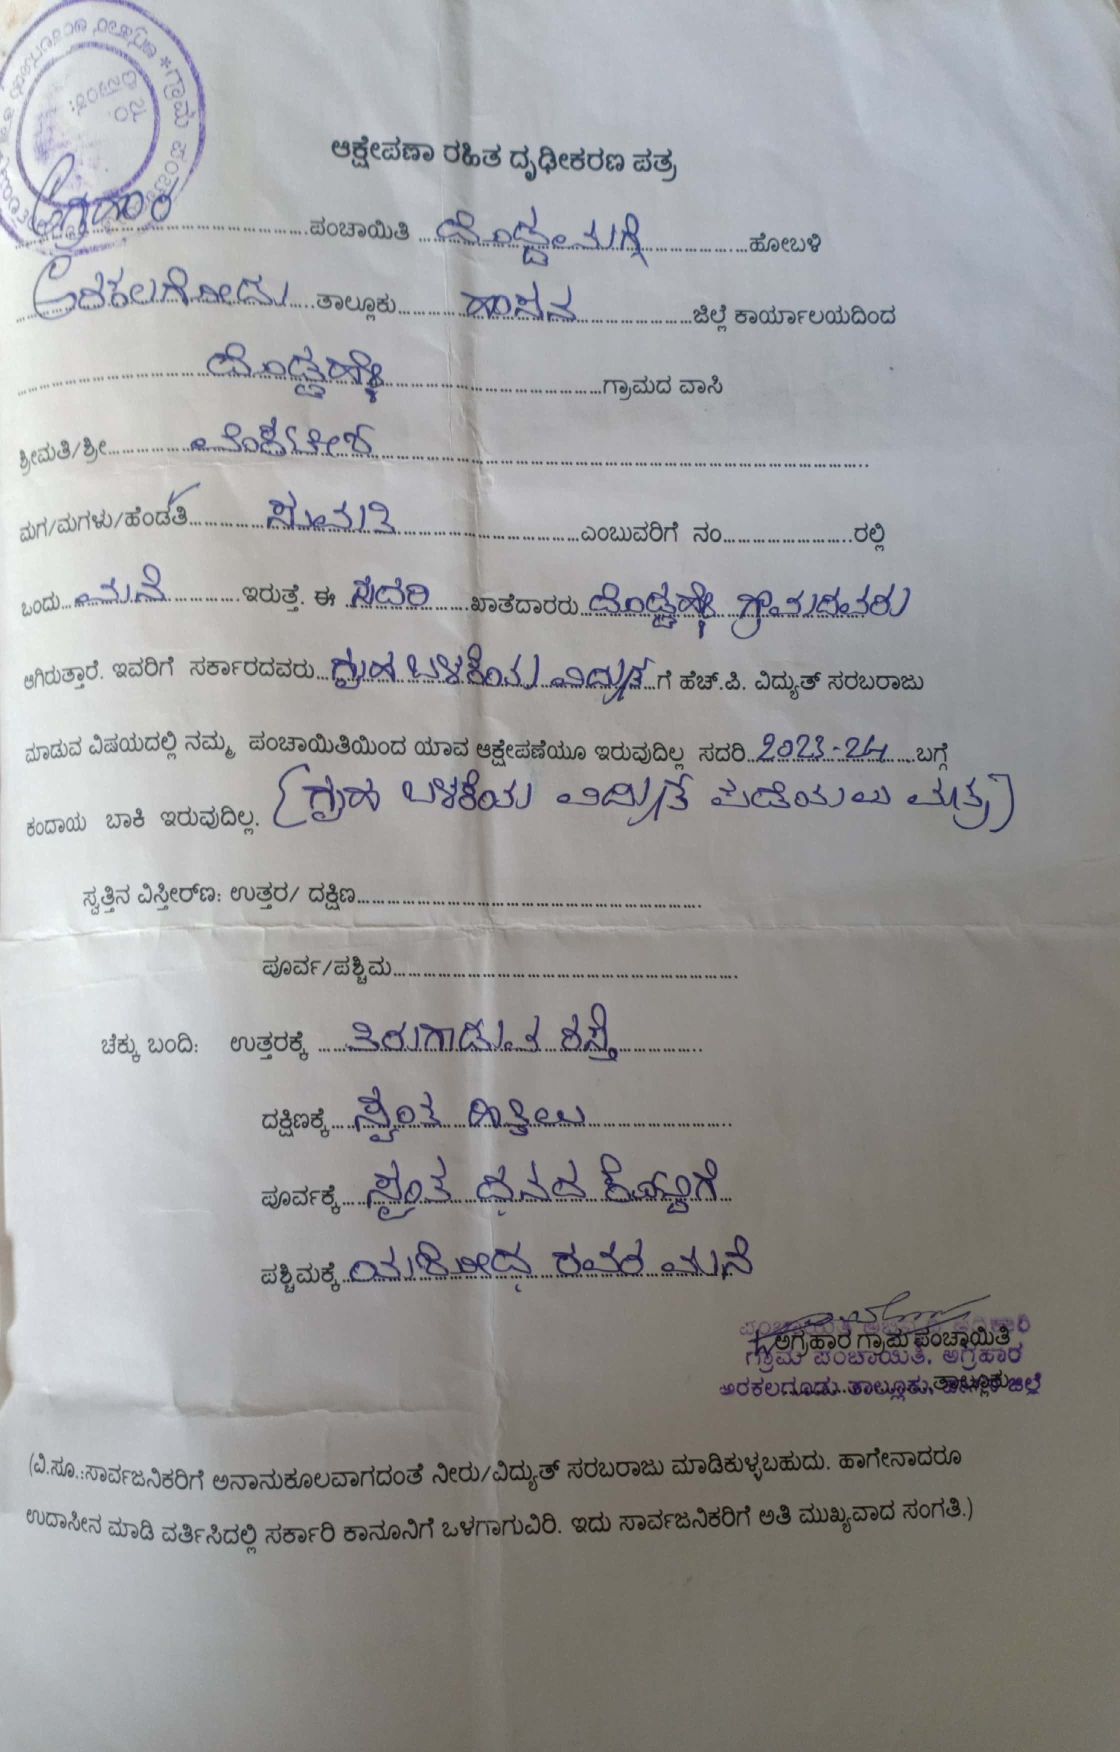 ಗ್ರಾಮ ಪಂಚಾ
ಆಕ್ಷೇಪಣಾ ರಹಿತ ದೃಢೀಕರಣ ಪತ್ರ
ಅಗ್ರಹಾರ ಪಂಚಾಯಿತಿ ದೊಡ್ಡಮಗ್ಗೆ ಹೋಬಳಿ
ಅರಕಲಗೋಡು ತಾಲ್ಲೂಕು ಹಾಸನ ಜಿಲ್ಲೆ ಕಾರ್ಯಾಲಯದಿಂದ
ದೊಡ್ಡಹಳ್ಳಿ ಗ್ರಾಮದ ವಾಸಿ
ಶ್ರೀಮತಿ/ಶ್ರೀ ವೆಂಕಟೇಶ
ಮಗ/ಮಗಳು/ಹೆಂಡತಿ ಸುಮತಿ ಎಂಬುವರಿಗೆ ನಂ ರಲ್ಲಿ
ಒಂದು ಮನೆ ಇರುತ್ತೆ. ಈ ಸದರಿ ಖಾತೆದಾರರು ದೊಡ್ಡಹಳ್ಳಿ ಗ್ರಾಮದವರು
ಆಗಿರುತ್ತಾರೆ. ಇವರಿಗೆ ಸರ್ಕಾರದವರು ಗೃಹ ಬಳಕೆಯ ವಿದ್ಯುತ ಗೆ ಹೆಚ್.ಪಿ. ವಿದ್ಯುತ್ ಸರಬರಾಜು
ಮಾಡುವ ವಿಷಯದಲ್ಲಿ ನಮ್ಮ ಪಂಚಾಯಿತಿಯಿಂದ ಯಾವ ಆಕ್ಷೇಪಣೆಯೂ ಇರುವುದಿಲ್ಲ ಸದರಿ 2023-24 ಬಗ್ಗೆ
ಕಂದಾಯ ಬಾಕಿ ಇರುವುದಿಲ್ಲ. (ಗೃಹ ಬಳಕೆಯ ವಿದ್ಯುತ ಪಡೆಯಲು ಮಾತ್ರ)
ಸ್ವತ್ತಿನ ವಿಸ್ತೀರ್ಣ: ಉತ್ತರ/ ದಕ್ಷಿಣ
ಪೂರ್ವ/ಪಶ್ಚಿಮ
ಚೆಕ್ಕು ಬಂದಿ: ಉತ್ತರಕ್ಕೆ ತಿರುಗಾಡುವ ರಸ್ತೆ
ದಕ್ಷಿಣಕ್ಕೆ ಸ್ವಂತ ಹಿತ್ತಲು
ಪೂರ್ವಕ್ಕೆ ಸ್ವಂತ ಧನದ ಕೊಟ್ಟಿಗೆ
ಪಶ್ಚಿಮಕ್ಕೆ ಯಶೋಧ ರವರ ಮನೆ
ಅಗ್ರಹಾರ ಗ್ರಾಮ ಪಂಚಾಯಿತಿ
ಗ್ರಾಮ ಪಂಚಾಯಿತಿ, ಅಗ್ರಹಾರ
ಅರಕಲಗೂಡು ತಾಲ್ಲೂಕು, ಹಾಸನ ಜಿಲ್ಲೆ
ತಾಲ್ಲೂಕು
(ವಿ.ಸೂ.:ಸಾರ್ವಜನಿಕರಿಗೆ ಅನಾನುಕೂಲವಾಗದಂತೆ ನೀರು/ವಿದ್ಯುತ್ ಸರಬರಾಜು ಮಾಡಿಕುಳ್ಳಬಹುದು. ಹಾಗೇನಾದರೂ
ಉದಾಸೀನ ಮಾಡಿ ವರ್ತಿಸಿದಲ್ಲಿ ಸರ್ಕಾರಿ ಕಾನೂನಿಗೆ ಒಳಗಾಗುವಿರಿ. ಇದು ಸಾರ್ವಜನಿಕರಿಗೆ ಅತಿ ಮುಖ್ಯವಾದ ಸಂಗತಿ.)